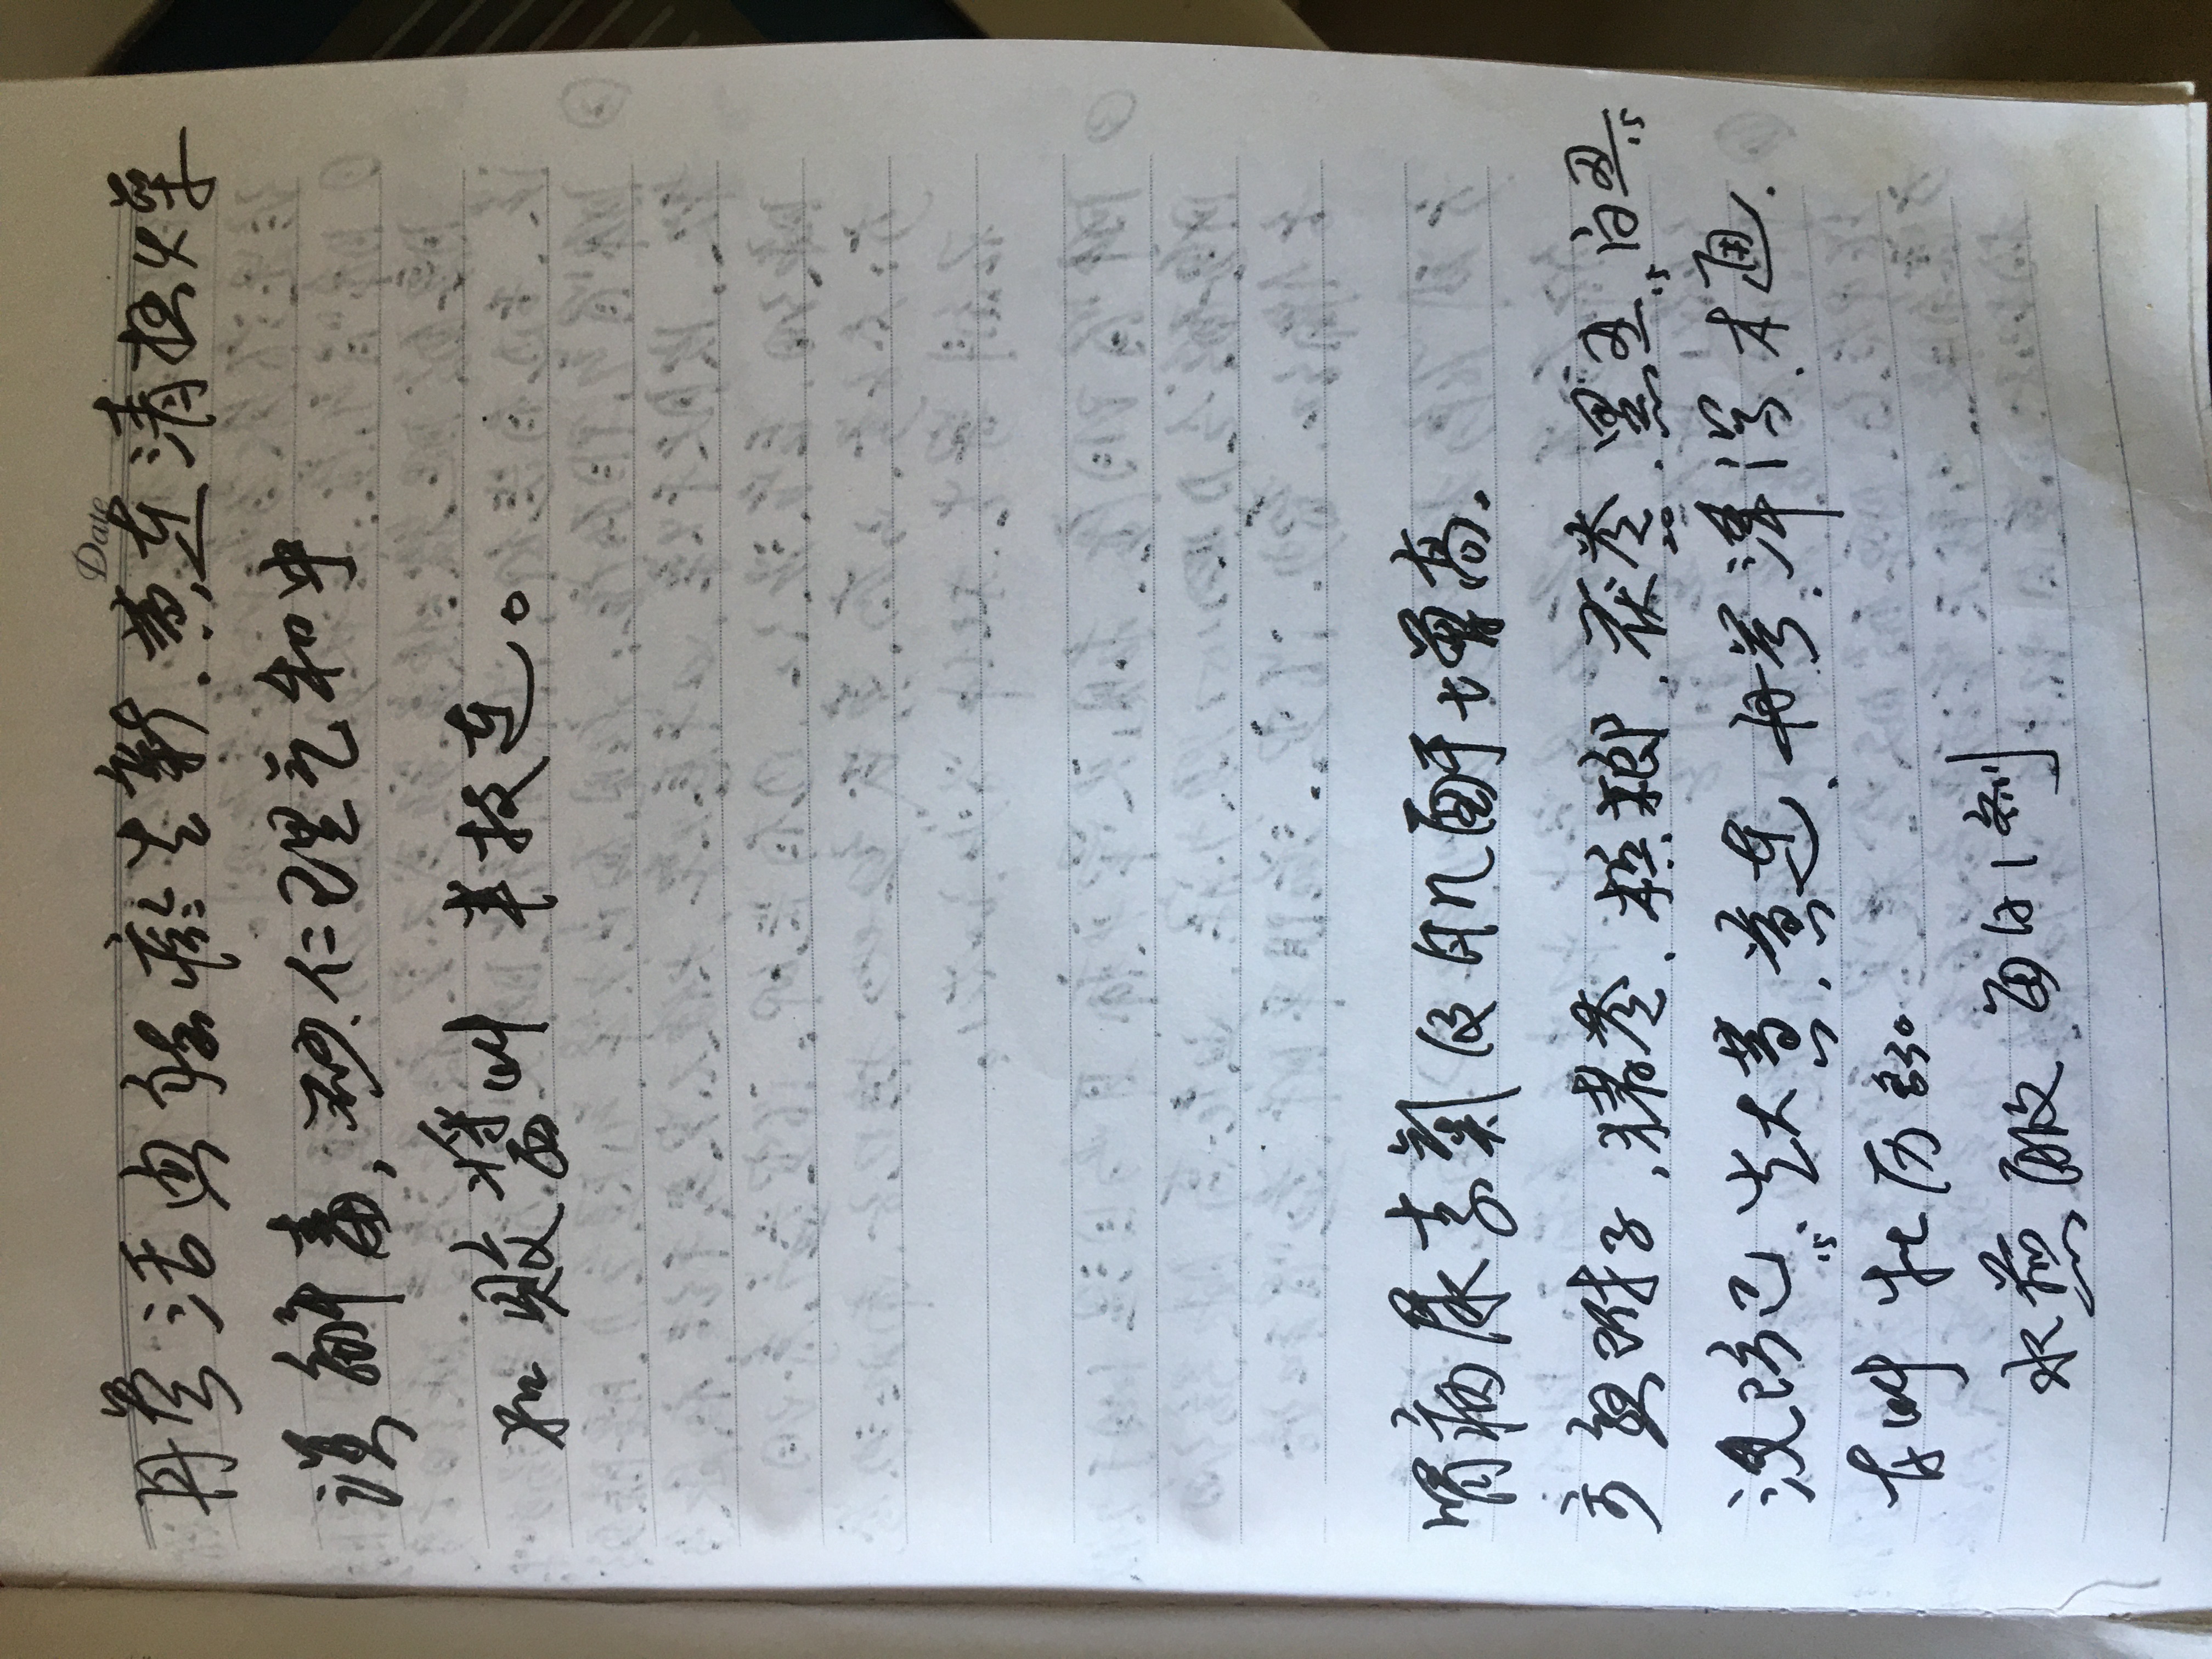 Date
丹参活血祛瘀生新.黄连清热燥
湿解毒,砂仁理气和中
和败酱叶 半枝连。
肾病尿素氮及肌酐增高.
方熟附子,猪苓.槟榔.茯苓20.黑丑15.白丑15
汉防己15.生大黄.黄连.丹参.泽泻.木通.
叶 牡历30
水煎服 每日1剂